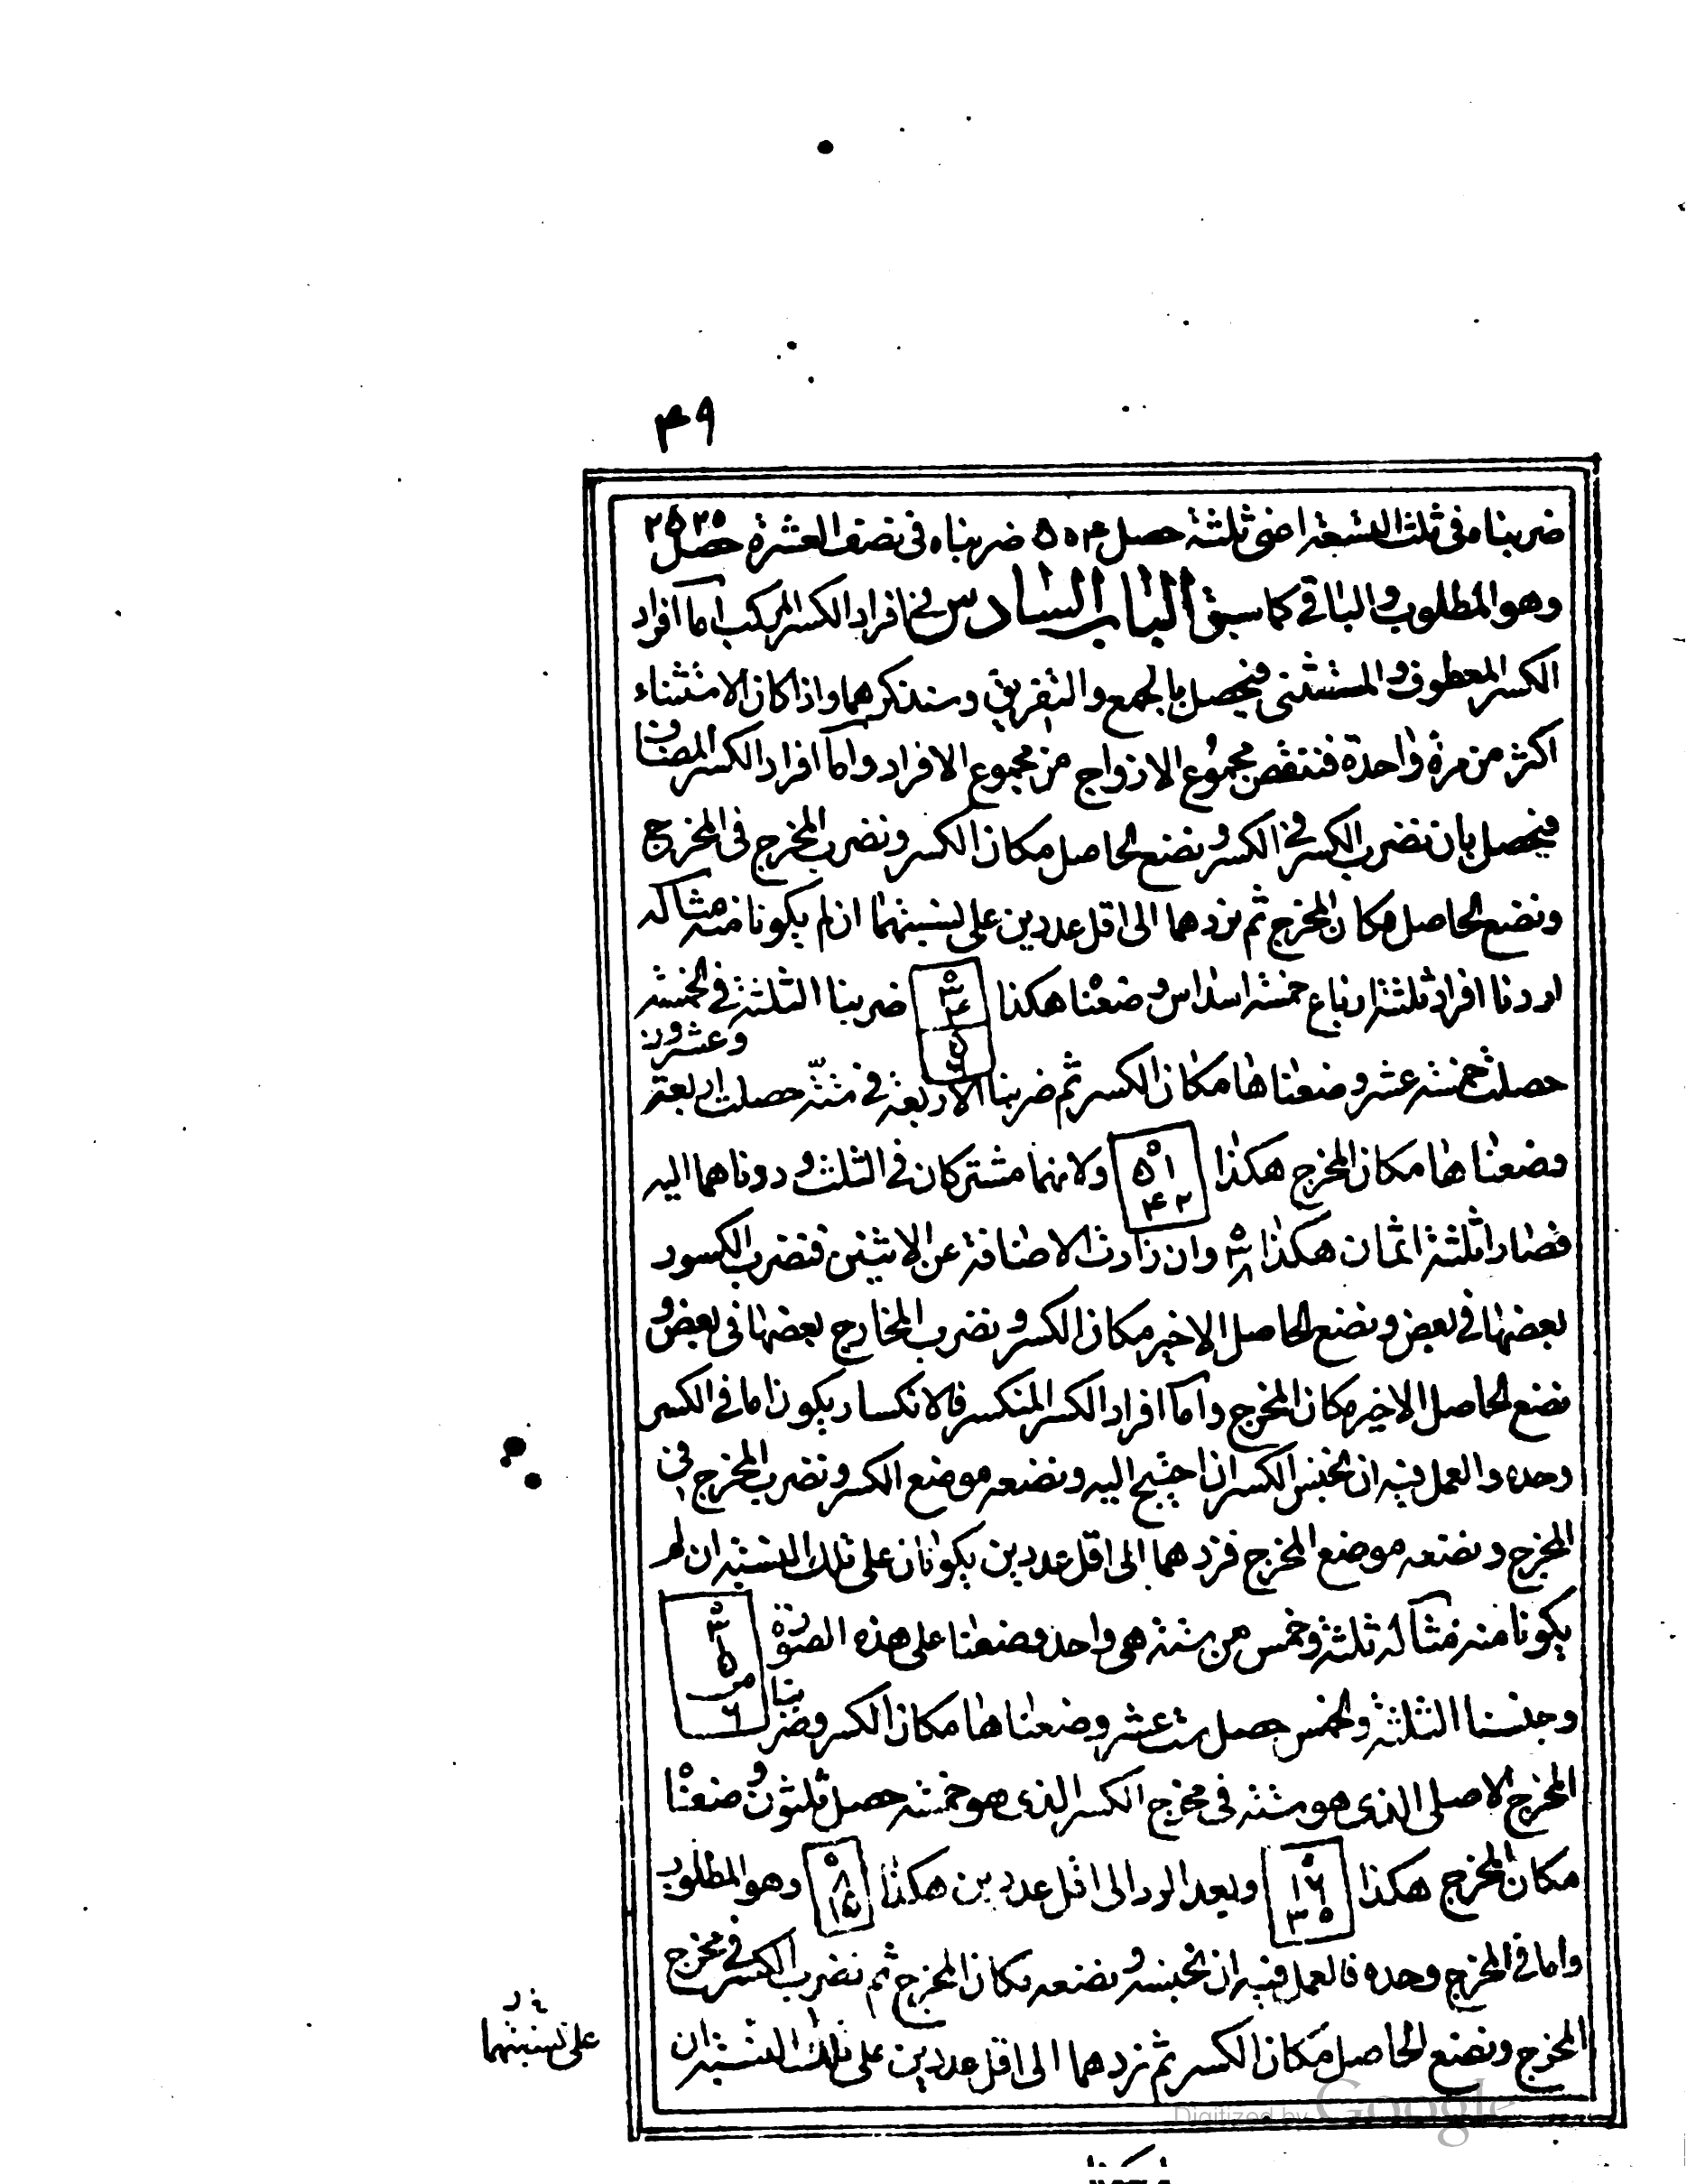 ٤٩
ضربناه فى ثلث التسعة اعنى ثلثة حصل ٥٠٤ ضربناه فى نصف العشرة حصل ٢٥٢٠
وهو المطلوب والباقى كما سبق الباب السادس فى افراد الكسر المركب اما افراد
الكسر المعطوف والمستثنى فيحصل بالجمع والتفريق وسنذكرهما واذا كان الاستثناء
اكثر من مرة واحدة فننقص مجموع الازواج من مجموع الافراد واما افراد الكسر المضاف
فيحصل بان نضرب الكسر فى الكسر ونضع الحاصل مكان الكسر ونضرب المخرج فى المخرج
ونضع الحاصل مكان المخرج ثم نردهما الى اقل عددين على نسبتهما ان لم يكونا منه مثاله
اردنا افراد ثلثة ارباع خمسة اسداس وضعنا هكذا ٣ ٤ ٥ ٦ ضربنا الثلثة فى الخمسة
حصلت خمسة عشر وضعناها مكان الكسر ثم ضربنا الاربعة فى ستة حصلت اربعة وعشرون
وضعناها مكان المخرج هكذا ١٥ ٢٤ ولانهما مشتركان فى الثلث ورددناهما اليه
فصارا ثلثة اثمان هكذا ٣ ٨ وان زادت الاضافة عن الاثنين فنضرب الكسور
بعضها فى بعض ونضع الحاصل الاخير مكان الكسر ونضرب المخارج بعضها فى بعض و
نضع الحاصل الاخير مكان المخرج واما افراد الكسر المنكسر فالانكسار يكون اما فى الكسر
وحده والعمل فيه ان نجنس الكسر ان احتيج اليه ونضعه موضع الكسر ونضرب المخرج فى
المخرج ونضعه موضع المخرج فنردهما الى اقل عددين يكونان على تلك النسبة ان لم
يكونا منه مثاله ثلثة وخمس من ستة هى واحد وضعنا على هذه الصورة ٣ ١ ٥ من ٦
وجنسنا الثلثة والخمس حصل ستة عشر وضعناها مكان الكسر وضربنا
المخرج الاصلى الذى هو ستة فى مخرج الكسر الذى هو خمسة حصل ثلثون وضعنا
مكان المخرج هكذا ١٦ ٣٠ وبعد الرد الى اقل عددين هكذا ٨ ١٥ وهو المطلوب
واما فى المخرج وحده فالعمل فيه ان نجنسه ونضعه مكان المخرج ثم نضرب الكسر فى مخرج
المخرج ونضع الحاصل مكان الكسر ثم نردهما الى اقل عددين على تلك النسبة ان
على نسبتهما
Digitized by Google